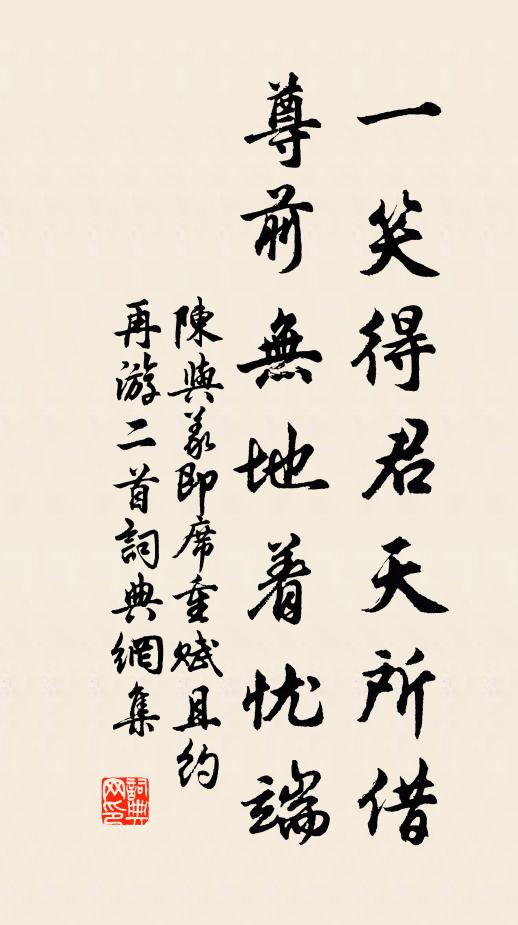 一笑得君天所借
尊前無地着忧端
陳與義即席重賦且約
再游二首詞典網集
詞典
网印